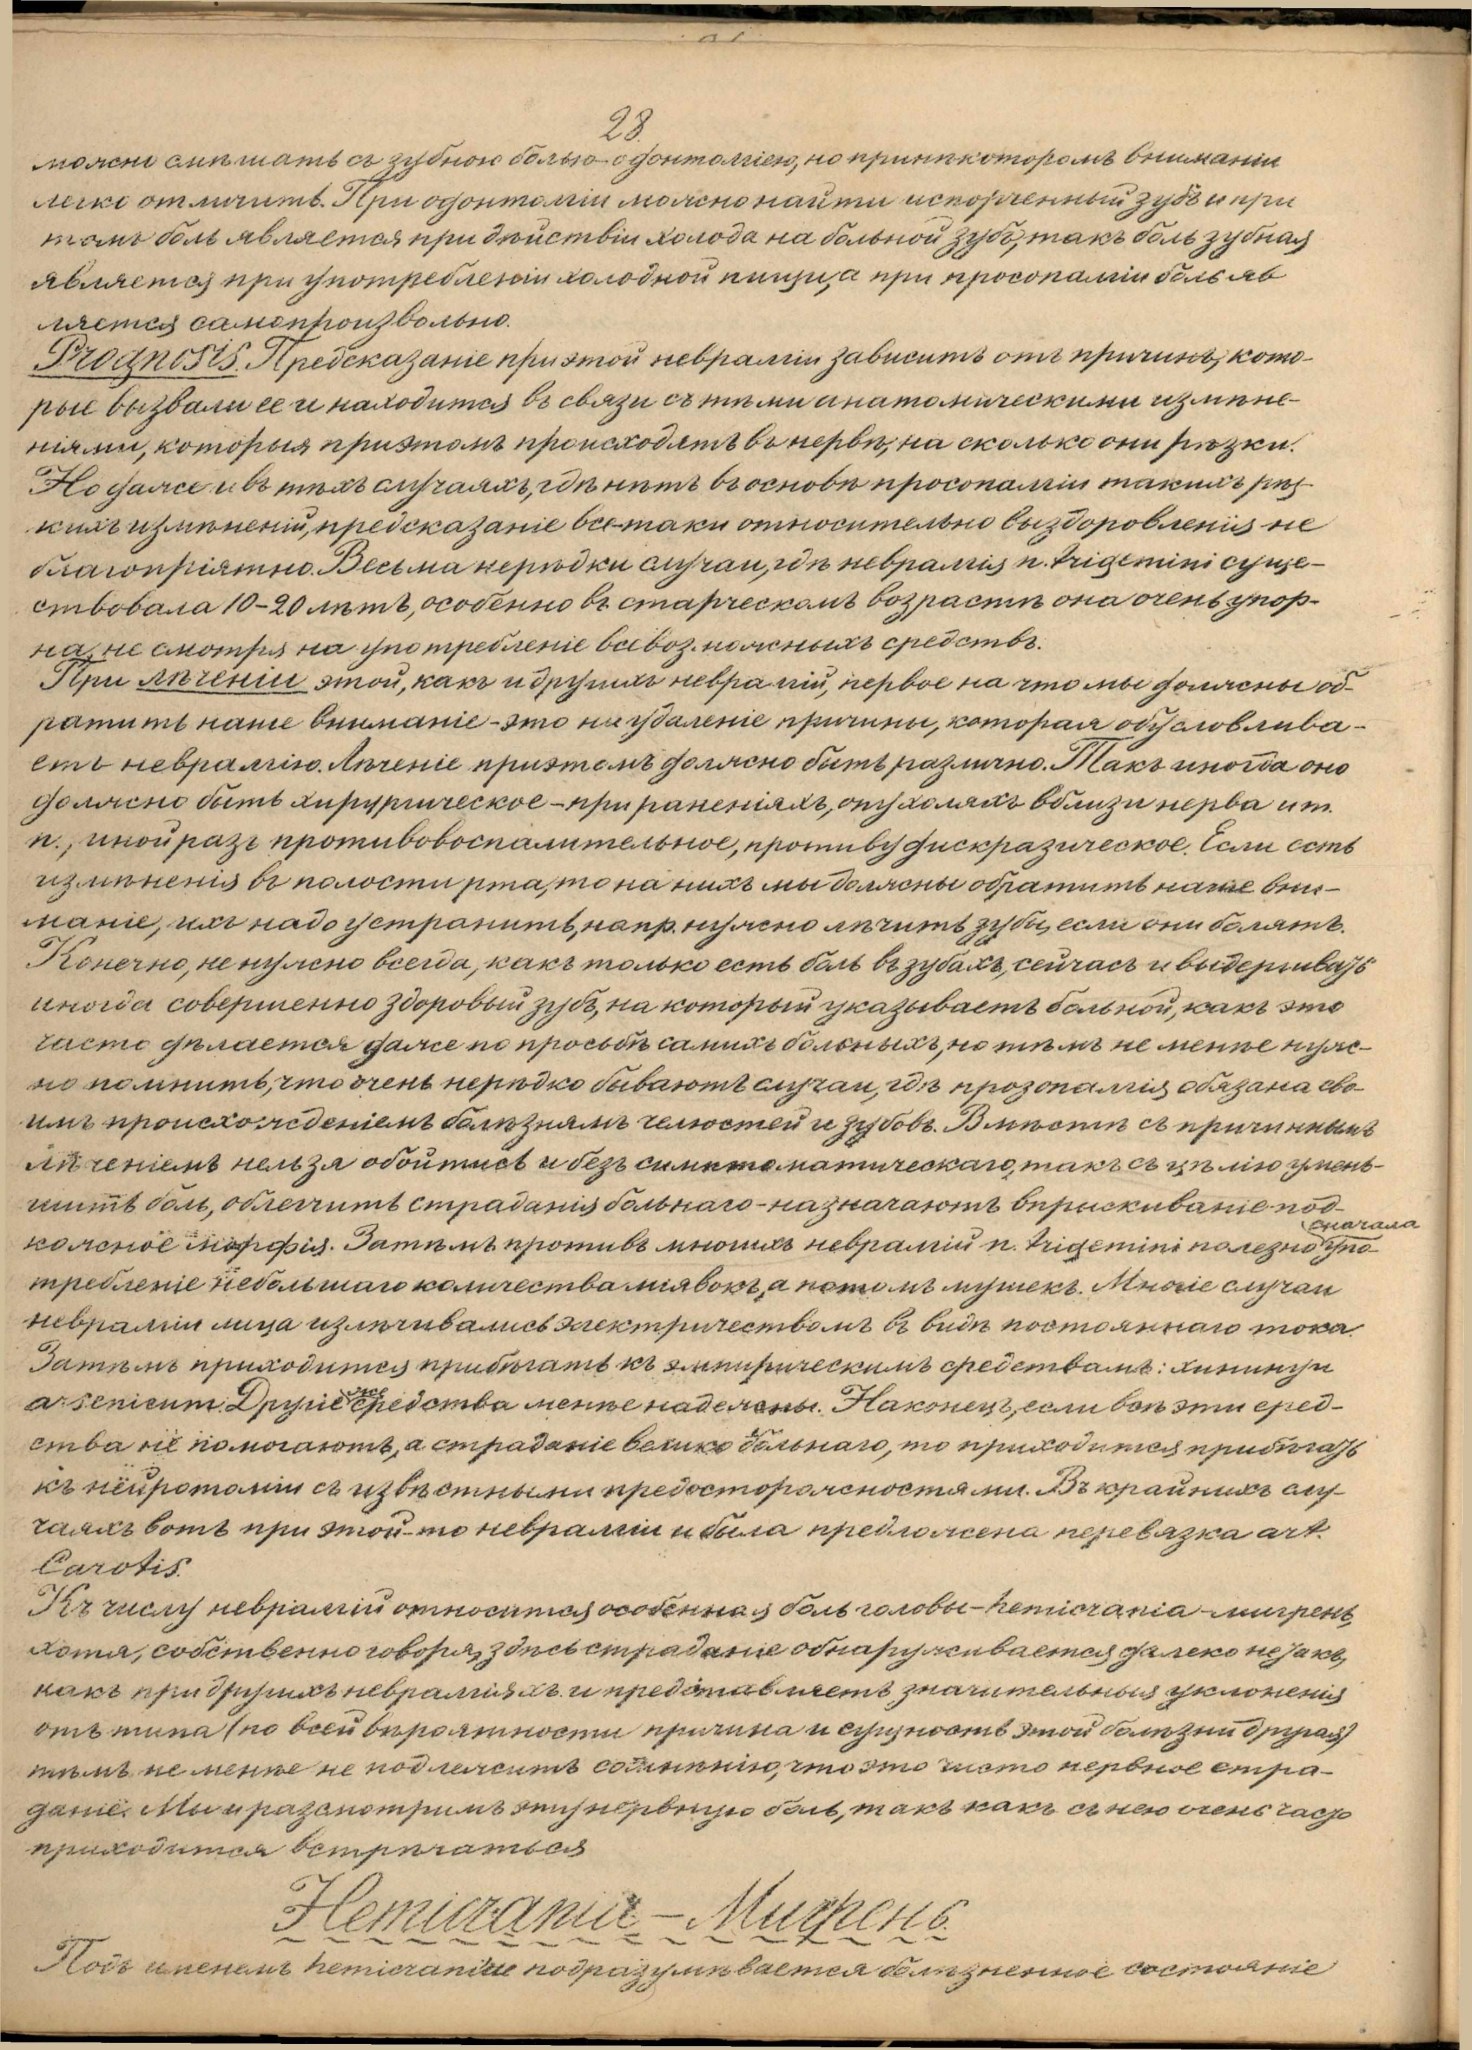 28.
можно смѣшать съ зубною болью-одонталгіею, но принѣкоторомъ вниманіи
легко отличить. При одонталгіи можно найти испорченный зубъ и при
томъ боль является при дѣйствіи холода на больной зубъ, такъ боль зубная
является при употребленіи холодной пищи, а при просопалгіи боль яв
ляется самопроизвольно.
Prognosis. Предсказаніе при этой невралгіи зависитъ отъ причинъ, кото-
рые вызвали ее и находится въ связи съ тѣми анатомическими измѣне-
ніями, которыя при этомъ происходятъ въ нервѣ, на сколько они рѣзки.
Но даже и въ тѣхъ случаяхъ, гдѣ нѣтъ въ основѣ просопалгіи такихъ рѣз-
кихъ измѣненій, предсказаніе все-таки относительно выздоровленія не
благопріятно. Весьма нерѣдки случаи, гдѣ невралгія n. trigemini суще-
ствовала 10-20 лѣтъ, особенно въ старческомъ возрастѣ она очень упор-
на, не смотря на употребленіе всевозможныхъ средствъ.
При лѣченіи этой, какъ и другихъ невралгій, первое на что мы должны об-
ратить наше вниманіе - это на удаленіе причины, которая обусловлива-
етъ невралгію. Лѣченіе при этомъ должно быть различно. Такъ иногда оно
должно быть хирургическое - при раненіяхъ, опухоляхъ вблизи нерва и т.
п., иной разъ противовоспалительное, противу дискразическое. Если есть
измѣненія въ полости рта, то на нихъ мы должны обратить наше вни-
маніе, ихъ надо устранить, напр. нужно лѣчить зубы, если они болятъ.
Конечно, не нужно всегда, какъ только есть боль въ зубахъ, сейчасъ и выдергивать
иногда совершенно здоровый зубъ, на который указываетъ больной, какъ это
часто дѣлается даже по просьбѣ самихъ больныхъ, но тѣмъ не менѣе нуж-
но помнить, что очень нерѣдко бываютъ случаи, гдѣ прозопалгія обязана сво-
имъ происхожденіемъ болѣзнямъ челюстей и зубовъ. Вмѣстѣ съ причиннымъ
лѣченіемъ нельзя обойтись и безъ симптоматическаго, такъ съ цѣлію умень-
шить боль, облегчить страданія больнаго - назначаютъ впрыскиваніе под-
кожное морфія. Затѣмъ противъ многихъ невралгій n. trigemini полезно сначала упо-
требленіе небольшаго количества піявокъ, а потомъ мушекъ. Многіе случаи
невралгіи лица излѣчивались электричествомъ въ видѣ постояннаго тока.
Затѣмъ приходится прибѣгать къ эмпирическимъ средствамъ: хинину и
arsenicum. Другіе же средства менѣе надежны. Наконецъ, если всѣ эти сред-
ства не помогаютъ, а страданіе велико больнаго, то приходится прибѣгать
къ нейротоміи съ извѣстными предосторожностями. Въ крайнихъ слу-
чаяхъ вотъ при этой-то невралгіи и была предложена перевязка art.
Carotis.
Къ числу невралгій относится особенная боль головы - hemicrania - мигрень,
хотя, собственно говоря, здѣсь страданіе обнаруживается далеко не такъ,
какъ при другихъ невралгіяхъ и представляетъ значительныя уклоненія
отъ типа (по всей вѣроятности причина и сущность этой болѣзни другая)
тѣмъ не менѣе не подлежитъ сомнѣнію, что это чисто нервное стра-
даніе. Мы и разсмотримъ эту нервную боль, такъ какъ съ нею очень часто
приходится встрѣчаться
Hemicrania - Мигрень.
Подъ именемъ hemicraniae подразумѣвается болѣзненное состояніе